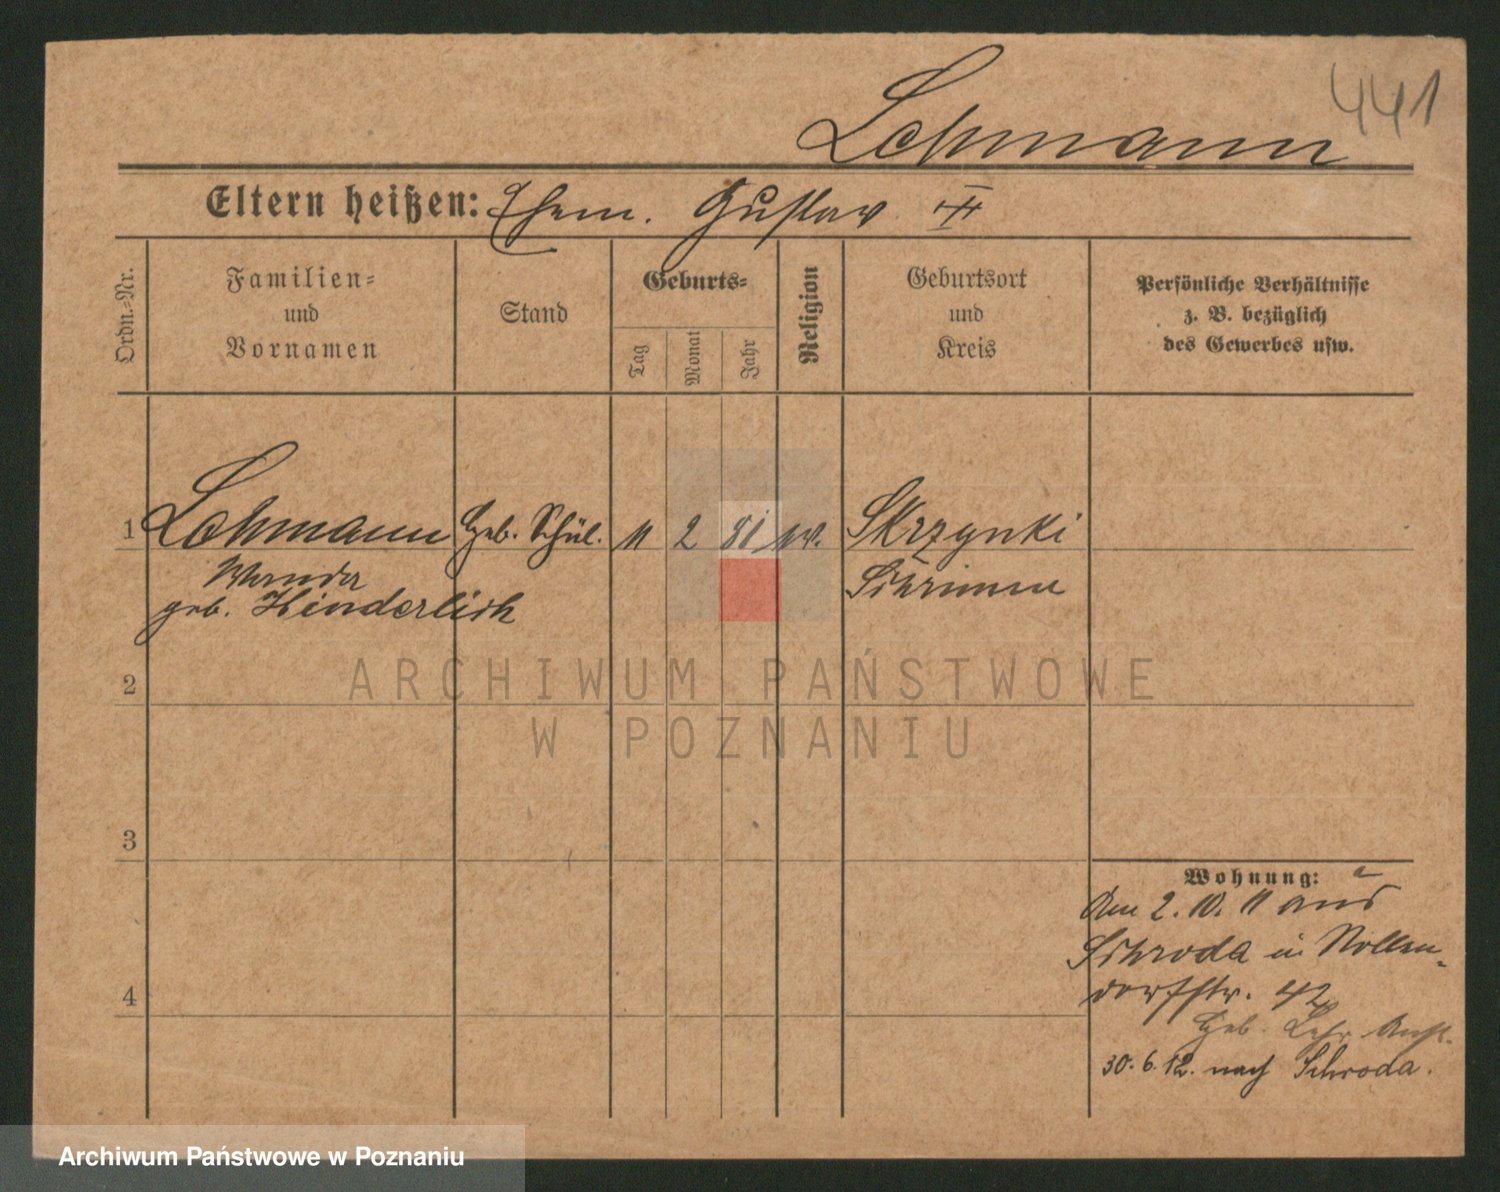 441
Lohmann
Eltern heißen: Ehem. Gustav
Ordn.-Nr.
Familien-
und
Vornamen
Stand
Geburts-
Tag
Monat
Jahr
Religion
Geburtsort
und
Kreis
Persönliche Verhältnisse
z. B. bezüglich
des Gewerbes usw.
1 Lohmann Heb. Schül. 11 2 81 ev. Skrzynki
Wanda Schrimm
geb. Hinderlich
2
3
4
Wohnung:
Am 2. 10. 11 aus
Schroda in Nollen-
dorfstr. 42
Heb. Lehr Anst.
30. 6. 12. nach Schroda.
ARCHIWUM PAŃSTWOWE
W POZNANIU
Archiwum Państwowe w Poznaniu